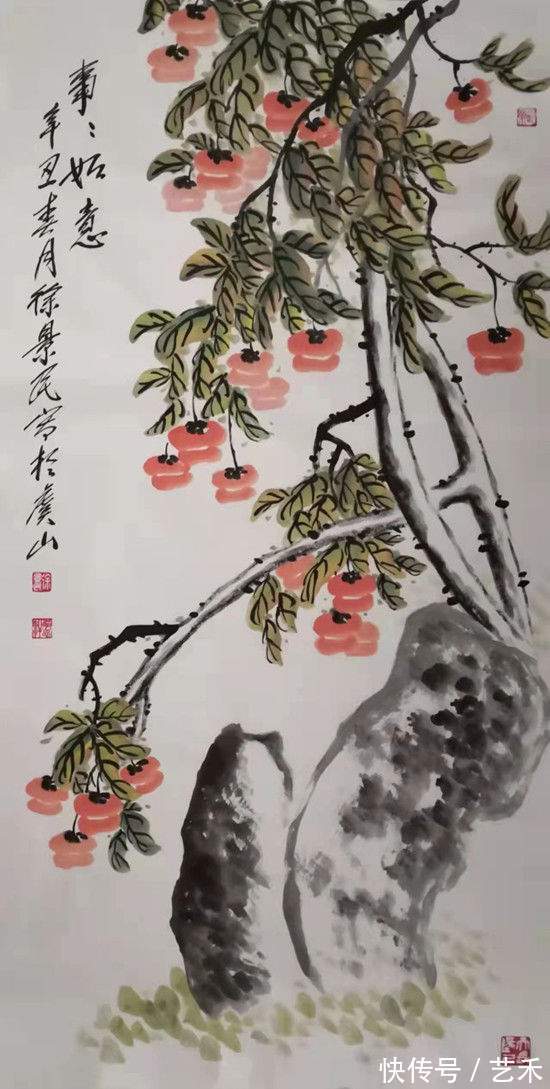 事〻如意
辛丑春月徐景民写於虞山
快传号 / 艺禾